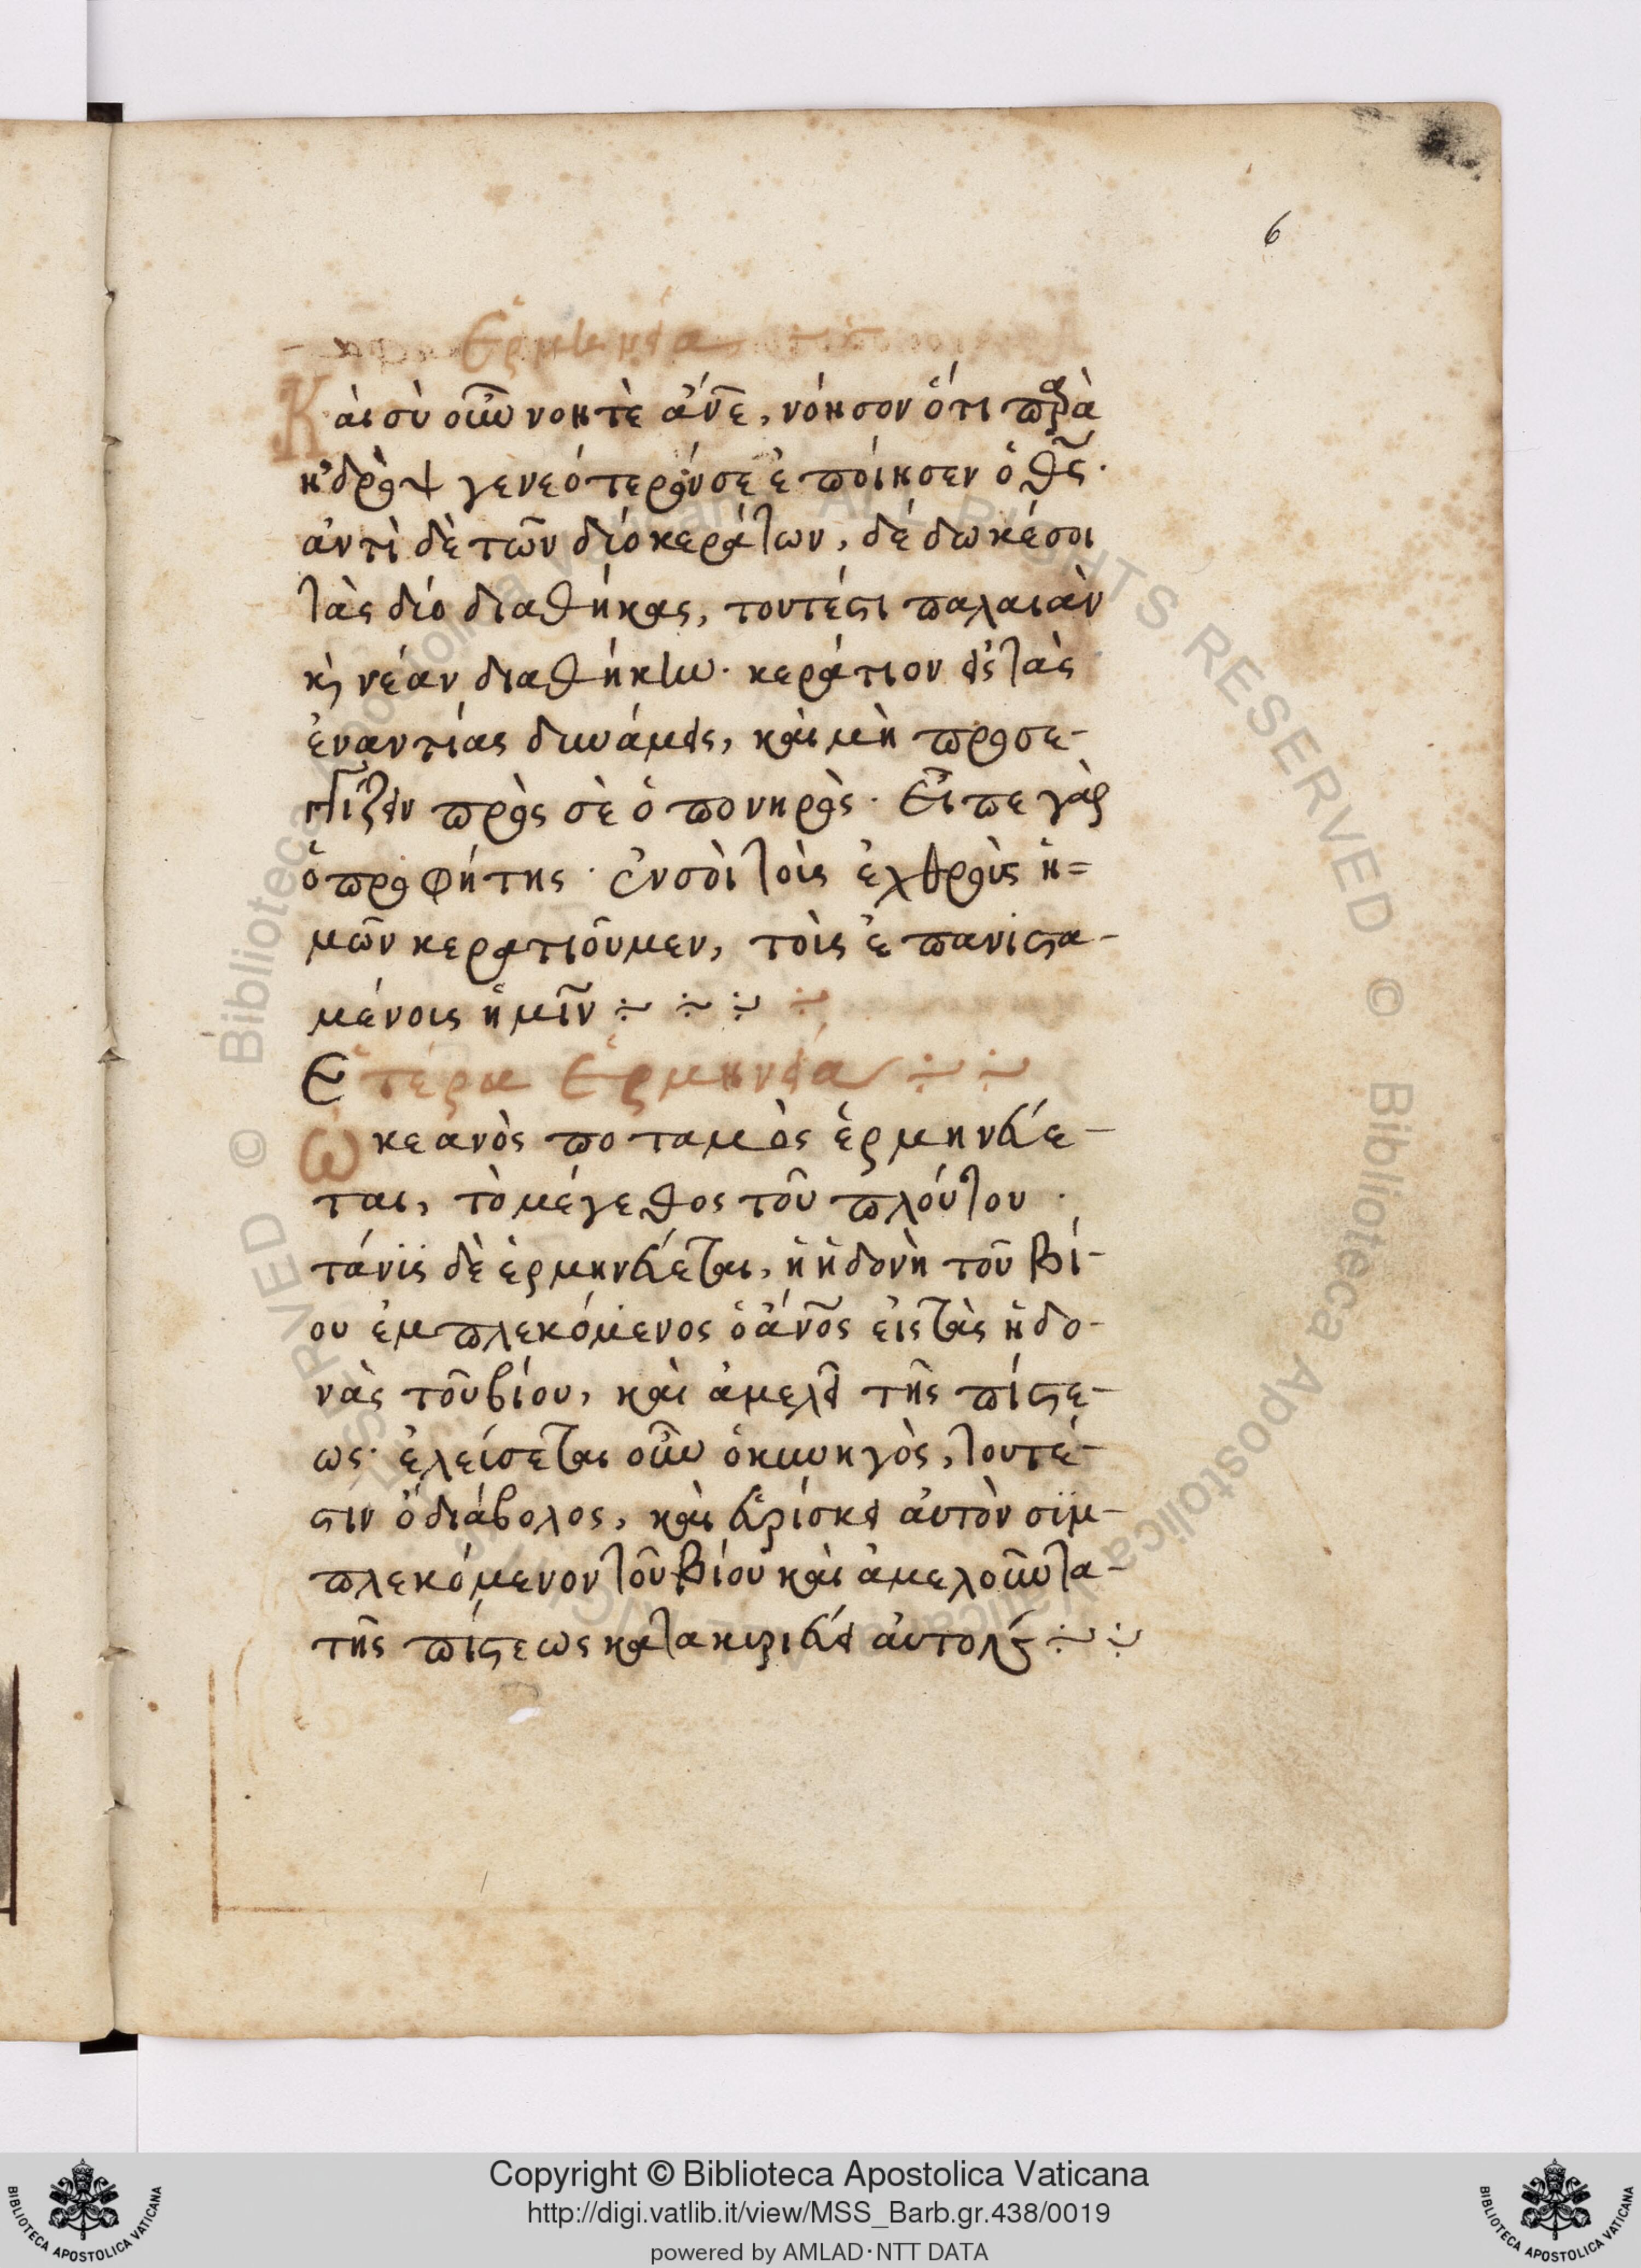 6
Ἑρμηνεία
Κὰι σὺ οὖν νοητὲ ἄν̅ε, νόησον ὅτι παρὰ
γενεότερόν σε ἐποίησεν ὁ θς̅·
ἀντὶ δὲ τῶν δίο κεράτων, δέδωκέ σοι
τὰς δίο διαθήκας, τουτέστι παλαιὰν
κ̀ νέαν διαθήκην· κεράτιον εἰς τὰς
ἐναντίας δυνάμεις, καὶ μὴ προσε-
γγίζειν πρὸς σὲ ὁ πονηρὸς· Εἶπε γὰρ
ὁ προφήτης· ἐν σὸι τοὶς ἐχθροὺς ἡ=
μῶν κερατιοῦμεν, τοὶς ἐπανιστα-
μένοις ἡμῖν ÷ ÷ ÷ ÷
Ἑτέρα Ἑρμηνεία ÷ ÷
Ὠκεανὸς ποταμὸς ἑρμηνεύε-
ται, τὸ μέγεθος τοῦ πλούτου ·
τάνις δὲ ἑρμηνεύεται, ἡ ἡδονὴ τοῦ βί-
ου ἐμπλεκόμενος ὁ ἄν̅ος εἰς τὰς ἡδο-
νὰς τοῦ βίου, καὶ ἀμελεῖ τῆς πίστε-
ως· ἐλείσεται οὖν ὁ κυνηγὸς, τουτέ-
στιν ὁ διάβολος, καὶ εὑρίσκει ἀυτὸν σϊμ-
πλεκόμενον τοῦ βίου καὶ ἀμελοῦντα-
τῆς πίστεως κατακυριεύει ÷ ÷
Copyright © Biblioteca Apostolica Vaticana
http://digi.vatlib.it/view/MSS_Barb.gr.438/0019
powered by AMLAD·NTT DATA
BIBLIOTECA APOSTOLICA VATICANA
BIBLIOTECA APOSTOLICA VATICANA